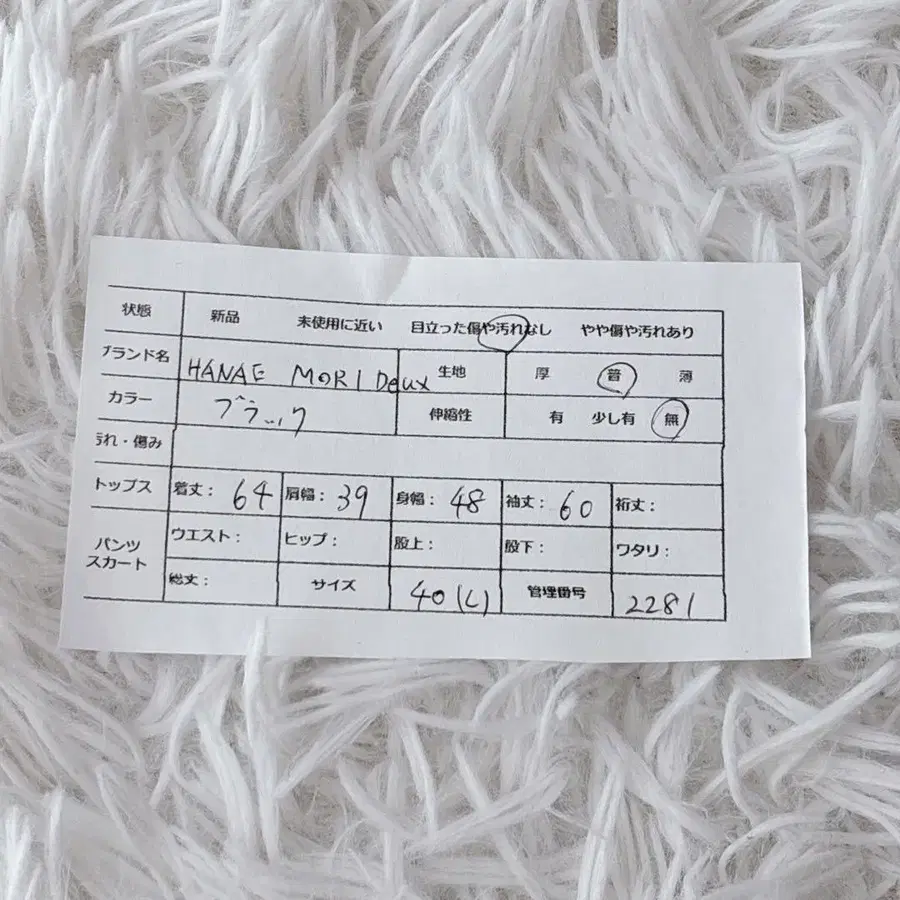 状態 新品 未使用に近い 目立った傷や汚れなし やや傷や汚れあり
ブランド名 HANAE MORI Deux 生地 厚 普 薄
カラー ブラック 伸縮性 有 少し有 無
汚れ・傷み
トップス 着丈: 64 肩幅: 39 身幅: 48 袖丈: 60 裄丈:
パンツ スカート ウエスト: ヒップ: 股上: 股下: ワタリ:
総丈: サイズ 40(L) 管理番号 2281